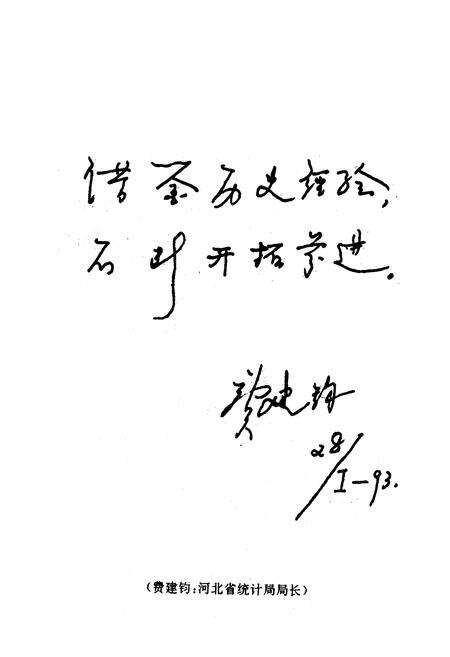 借鉴历史经验，
不断开拓前进。
费建钧
28/I-93.
（费建钧：河北省统计局局长）